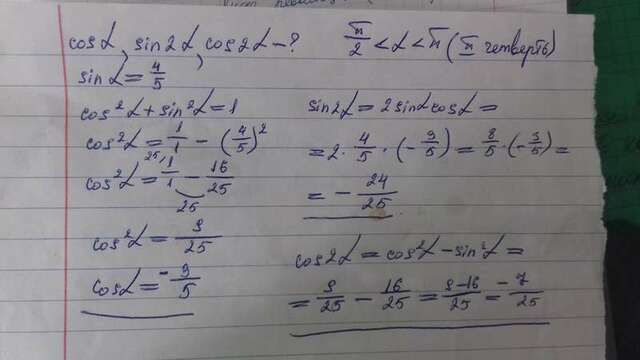 cosα, sin2α, cos2α - ?
π/2 < α < π (II четверть)
sinα = 4/5
cos²α + sin²α = 1
cos²α = 1/1 - (4/5)²
cos²α = 25/ 1/1 - 16/25
25
cos²α = 9/25
cosα = -3/5
sin2α = 2sinαcosα =
= 2 · 4/5 · (-3/5) = 8/5 · (-3/5) =
= - 24/25
cos2α = cos²α - sin²α =
= 9/25 - 16/25 = 9-16/25 = -7/25